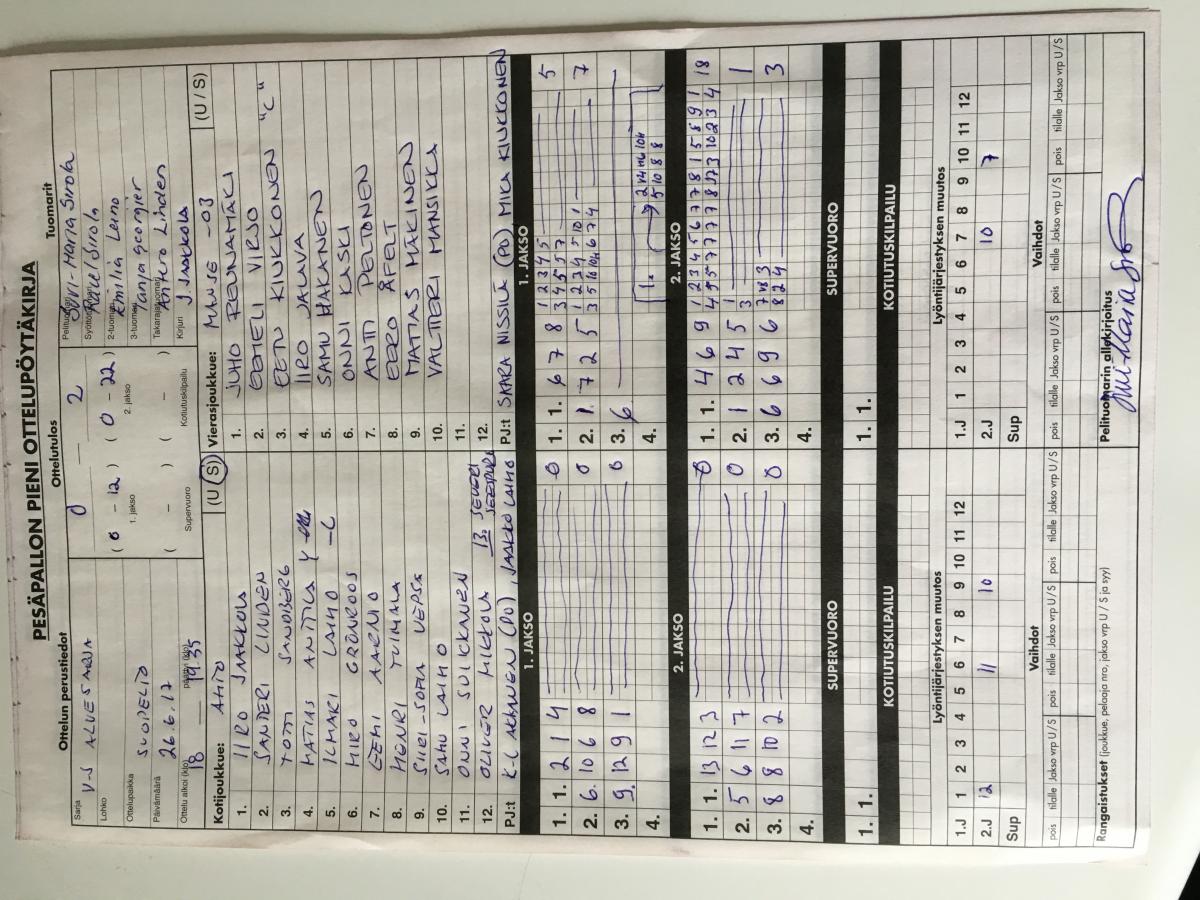 PESÄPALLON PIENI OTTELUPÖYTÄKIRJA
Ottelun perustiedot
Ottelutulos
Tuomarit
Sarja
V-S ALUESARJA
Lohko
Ottelupaikka
SUOPELTO
Päivämäärä
26.6.17
Ottelu alkoi (klo)
18
päättyi (klo)
19.35
0 — 2
( 0 - 12 ) ( 0 - 22 )
1. jakso
2. jakso
( - ) ( - )
Supervuoro
Kotiutuskilpailu
Suvi-Maria Sirola
2-tuomari
Emilia Leino
3-tuomari
Tanja
Takarajatuomari
Antero Linden
Kirjuri
J. Jaakkola
Kotijoukkue: AHTO (U/S)
1. IIRO JAAKKOLA
2. SANTERI LINDEN
3. TOMI SANDBERG
4. MATIAS ANTTILA
5. ILMARI LAIHO -C
6. MIRO GRÖNROOS
7. EEMI AARNIO
8. HENRI TUIMALA
9. SIIRI-SOFIA VEPSÄ
10. SAMU LAIHO
11. ONNI SUIKKANEN
12. OLIVER MIKKOLA 13.
PJ:t K-L AHONEN (PO), JAAKKO LAIHO
Vierasjoukkue: MANSE -03 (U / S)
1. JUHO REUNAMÄKI
2. EETELI VIRJO
3. EETU KIUKKONEN "C"
4. IIRO JALAVA
5. SAMU HAKANEN
6. ONNI KASKI
7. ANTTI PELTONEN
8. EERO ÅFELT
9. MATIAS MÄKINEN
10. VALTTERI MANSIKKA
11.
12.
PJ:t SAARA NISSILÄ (PO) MIKA KIUKKONEN
1. JAKSO
1. 1. 2 1 4 0
2. 6 10 6 8 0
3. 9 12 9 1 0
4.
1. JAKSO
1. 1. 6 7 8 1 2 3 4 5 5
3 4 5 5 7
2. 1. 7 2 5 1 2 3 4 5 10 1 7
3 5 10 10 6 7 4
3. 6
4.
2. JAKSO
1. 1. 13 12 3 0
2. 5 6 11 7 0
3. 8 8 10 2 0
4.
2. JAKSO
1. 1. 4 6 9 1 2 3 4 5 6 7 7 8 1 5 8 9 1 18
2. 1 2 4 5 1 1
3
3. 6 6 9 6 7 3
8 2 4
4.
SUPERVUORO
1. 1.
SUPERVUORO
1. 1.
KOTIUTUSKILPAILU
KOTIUTUSKILPAILU
Lyöntijärjestyksen muutos
1.J 1 2 3 4 5 6 7 8 9 10 11 12
2.J 12 11 10
Sup
Lyöntijärjestyksen muutos
1.J 1 2 3 4 5 6 7 8 9 10 11 12
2.J 10 7
Sup
Vaihdot
pois tilalle Jakso vrp U/S pois tilalle Jakso vrp U/S pois tilalle Jakso vrp U/S
Vaihdot
pois tilalle Jakso vrp U/S pois tilalle Jakso vrp U/S pois tilalle Jakso vrp U/S
Rangaistukset (joukkue, pelaaja nro, jakso vrp U / S ja syy)
Pelituomarin allekirjoitus